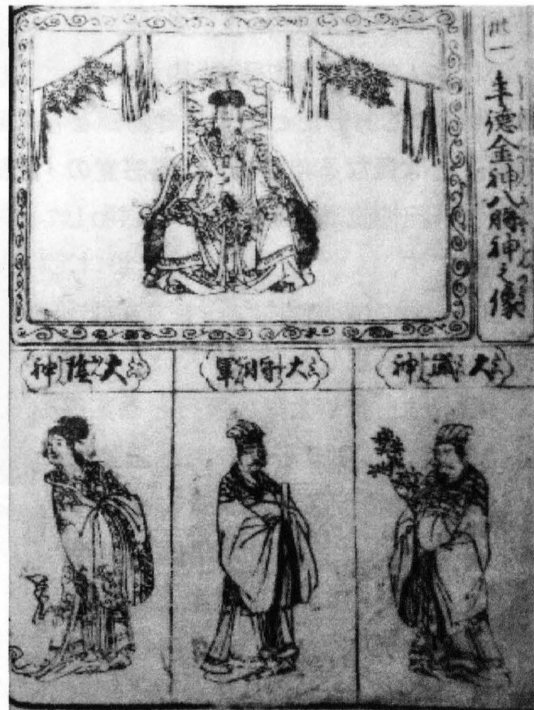 卅一
年德金神八將神之像
大歳神
大將軍
大陰神